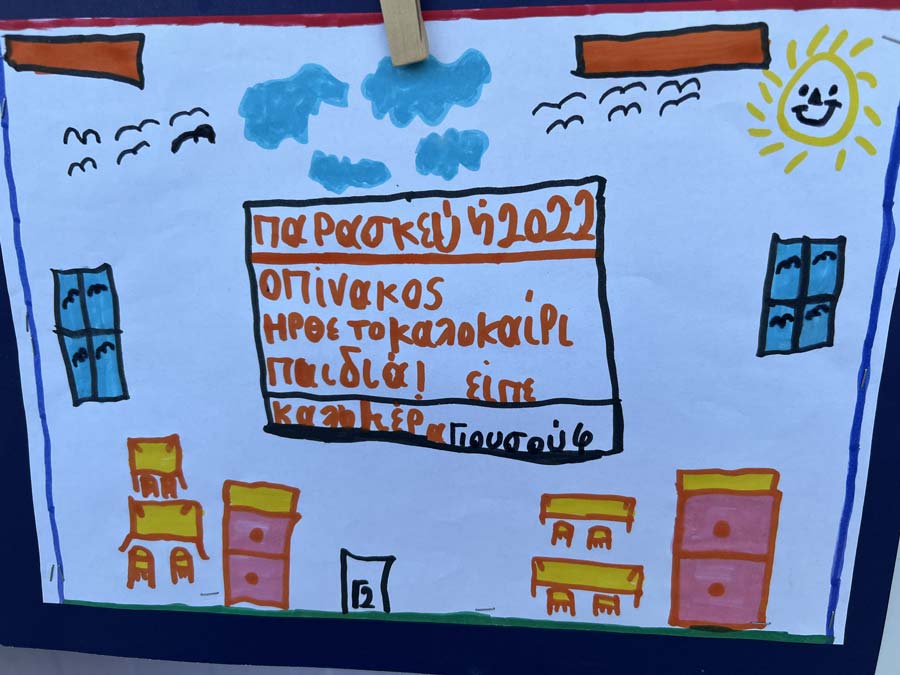 παρασκευή 2022
ο πίνακος
ΗΡΘΕ το καλοκαίρι
παιδιά! είπε
καλημέρα Γιουσούφ
Γ2